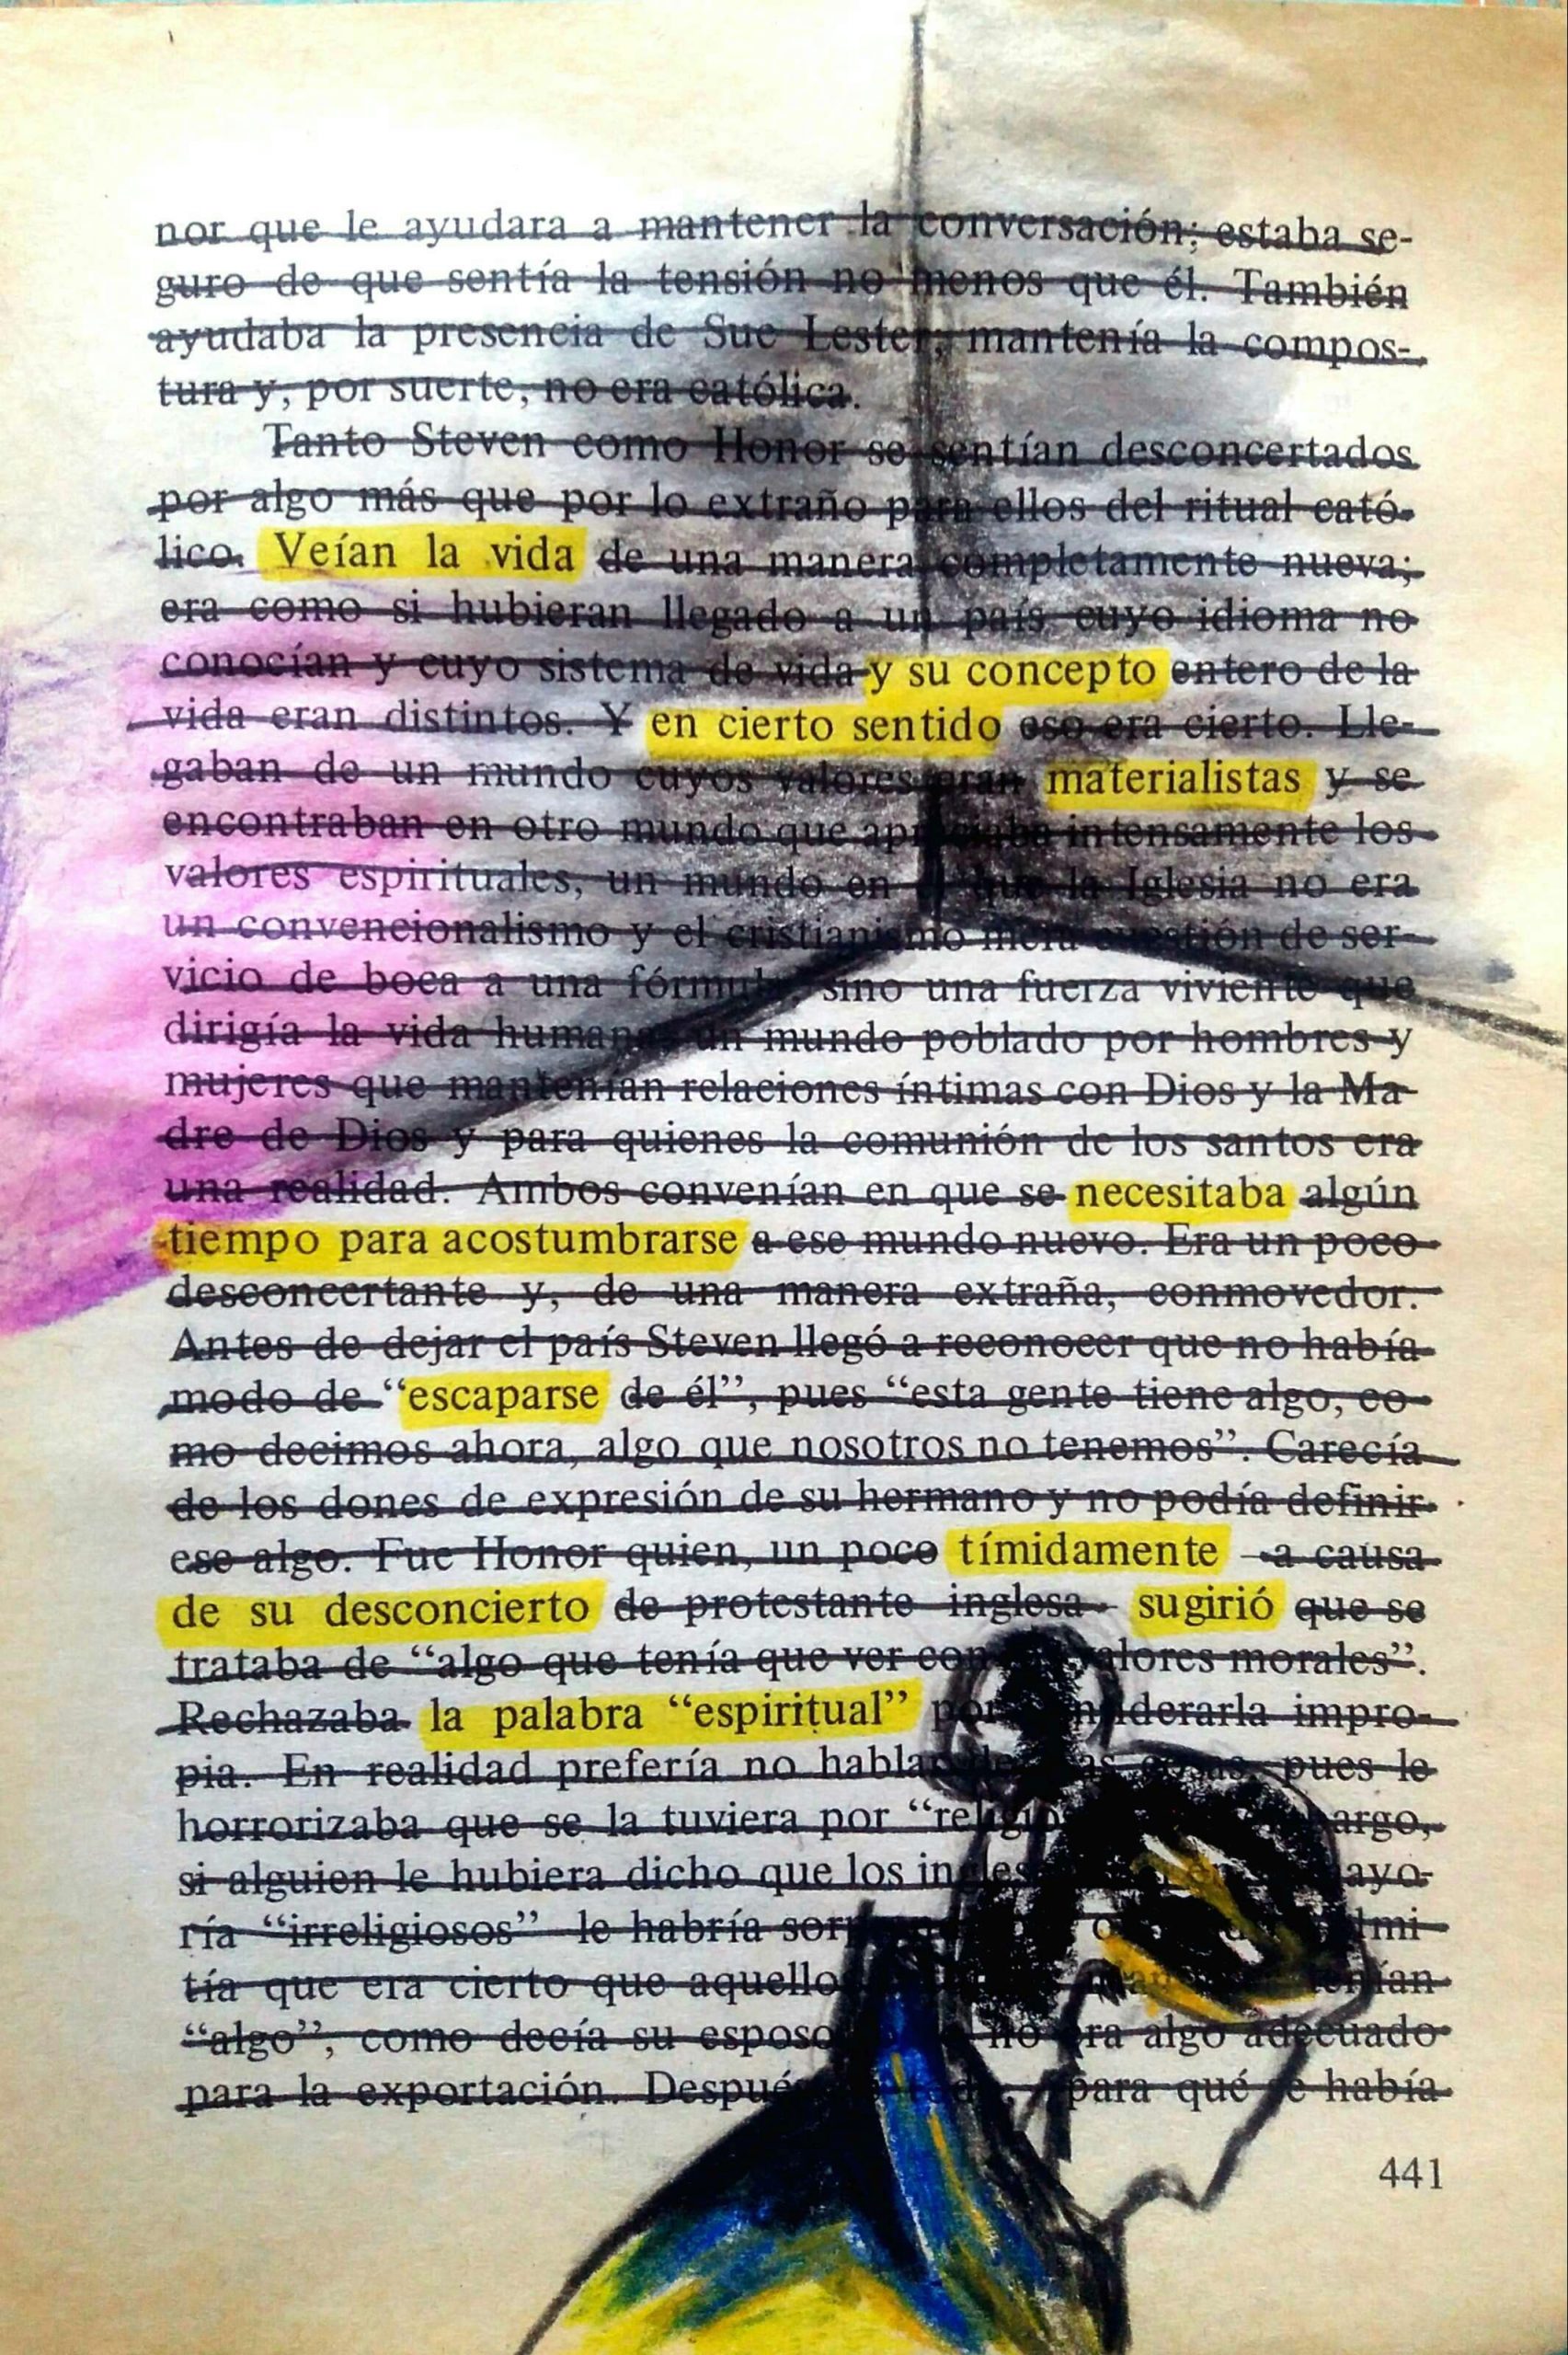 nor que le ayudara a mantener la conversación; estaba se-
guro de que sentía la tensión no menos que él. También
ayudaba la presencia de Sue Lester; mantenía la compos-
tura y, por suerte, no era católica.
Tanto Steven como Honor se sentían desconcertados
por algo más que por lo extraño para ellos del ritual cató-
lico. Veían la vida de una manera completamente nueva;
era como si hubieran llegado a un país cuyo idioma no
conocían y cuyo sistema de vida y su concepto entero de la
vida eran distintos. Y en cierto sentido eso era cierto. Lle-
gaban de un mundo cuyos valores eran materialistas y se
encontraban en otro mundo que apreciaba intensamente los
valores espirituales, un mundo en el que la Iglesia no era
un convencionalismo y el cristianismo mera cuestión de ser-
vicio de boca a una fórmula, sino una fuerza viviente que
dirigía la vida humana, un mundo poblado por hombres y
mujeres que mantenían relaciones íntimas con Dios y la Ma-
dre de Dios y para quienes la comunión de los santos era
una realidad. Ambos convenían en que se necesitaba algún
tiempo para acostumbrarse a ese mundo nuevo. Era un poco
desconcertante y, de una manera extraña, conmovedor.
Antes de dejar el país Steven llegó a reconocer que no había
modo de “escaparse de él”, pues “esta gente tiene algo, co-
mo decimos ahora, algo que nosotros no tenemos”. Carecía
de los dones de expresión de su hermano y no podía definir
ese algo. Fue Honor quien, un poco tímidamente —a causa
de su desconcierto de protestante inglesa— sugirió que se
trataba de “algo que tenía que ver con valores morales”.
Rechazaba la palabra “espiritual” por considerarla impro-
pia. En realidad prefería no hablar de cosas, pues le
horrorizaba que se la tuviera por
si alguien le hubiera dicho que los
ría “irreligiosos” le habría
tía que era cierto que
“algo”, como decía su esposo no era algo adecuado
para la exportación. Después ¿para qué se había
441